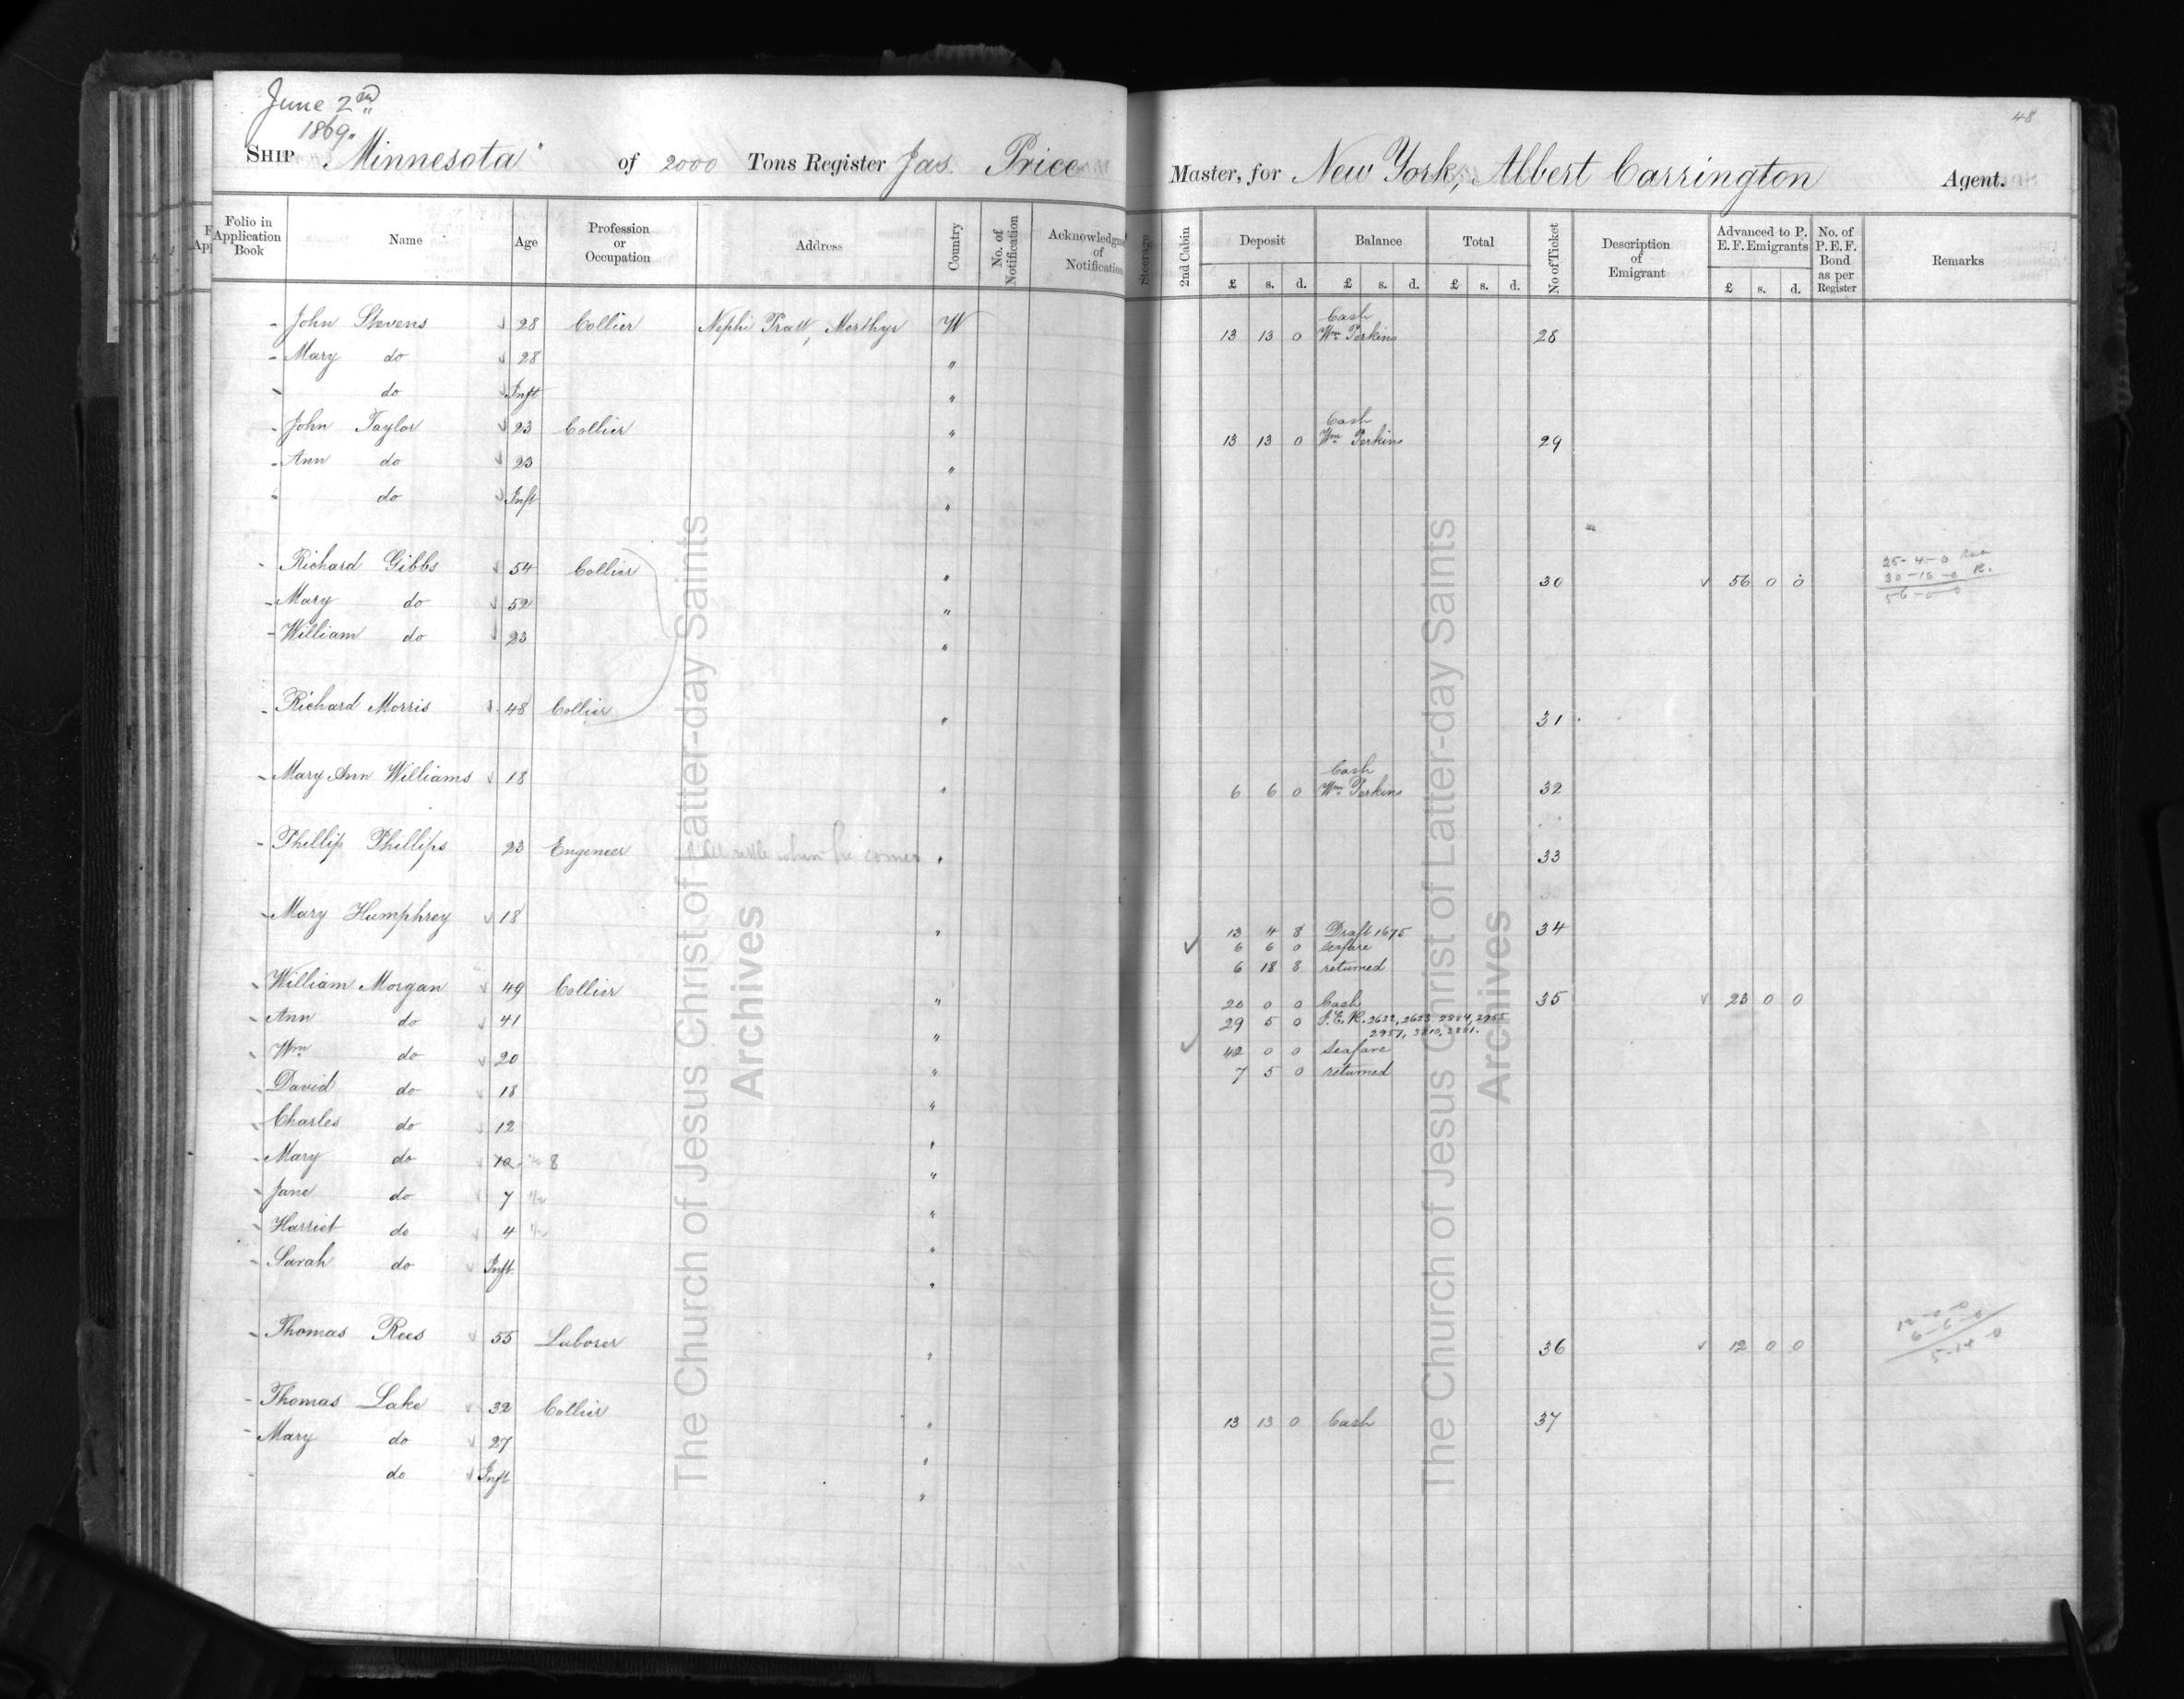 June 2nd
1869.
SHIP Minnesota" of 2000 Tons Register Jas. Price Master, for New York, Albert Carrington Agent.
48
Folio in Application Book Name Age Profession or Occupation Address Country No. of Notification Acknowledgm of Notification Steerage 2nd Cabin Deposit Balance Total No of Ticket Description of Emigrant Advanced to P. E. F. Emigrants No. of P. E. F. Bond as per Register Remarks
£ s. d. £ s. d. £ s. d. £ s. d.
Cash
- John Stevens 28 Collier Nephi Pratt, Merthyr W 13 13 0 Wm Perkins 28
- Mary do 28 "
- do Inft "
Cash
- John Taylor 23 Collier " 13 13 0 Wm Perkins 29
- Ann do 23 "
- do Inft "
- Richard Gibbs 54 Collier " 30 56 0 0
25-4-0
30-16-0 R.
56-0-0
- Mary do 52 "
- William do 23 "
- Richard Morris 48 Collier " 31
Cash
- Mary Ann Williams 18 " 6 6 0 Wm Perkins 32
- Phillip Phillips 23 Engeneer will settle when he comes " 33
- Mary Humphrey 18 " 13 4 8 Draft 1675 34
6 6 0 seafare
6 18 8 returned
- William Morgan 49 Collier " 20 0 0 Cash 35 23 0 0
- Ann do 41 " 29 5 0 P.E.R. 2622, 2623 2884, 2955
2957, 3810, 3881.
- Wm do 20 " 42 0 0 Seafare
- David do 18 " 7 5 0 returned
- Charles do 12 "
- Mary do 12 1/2 8 "
- Jane do 7 1/2 "
- Harriet do 4 1/2 "
- Sarah do Inft. "
- Thomas Rees 55 Laborer " 36 12 0 0
12-0-0
6-6-0
5-14-0
- Thomas Lake 32 Collier " 13 13 0 Cash 37
- Mary do 27 "
- do Inft "
The Church of Jesus Christ of Latter-day Saints
Archives
The Church of Jesus Christ of Latter-day Saints
Archives